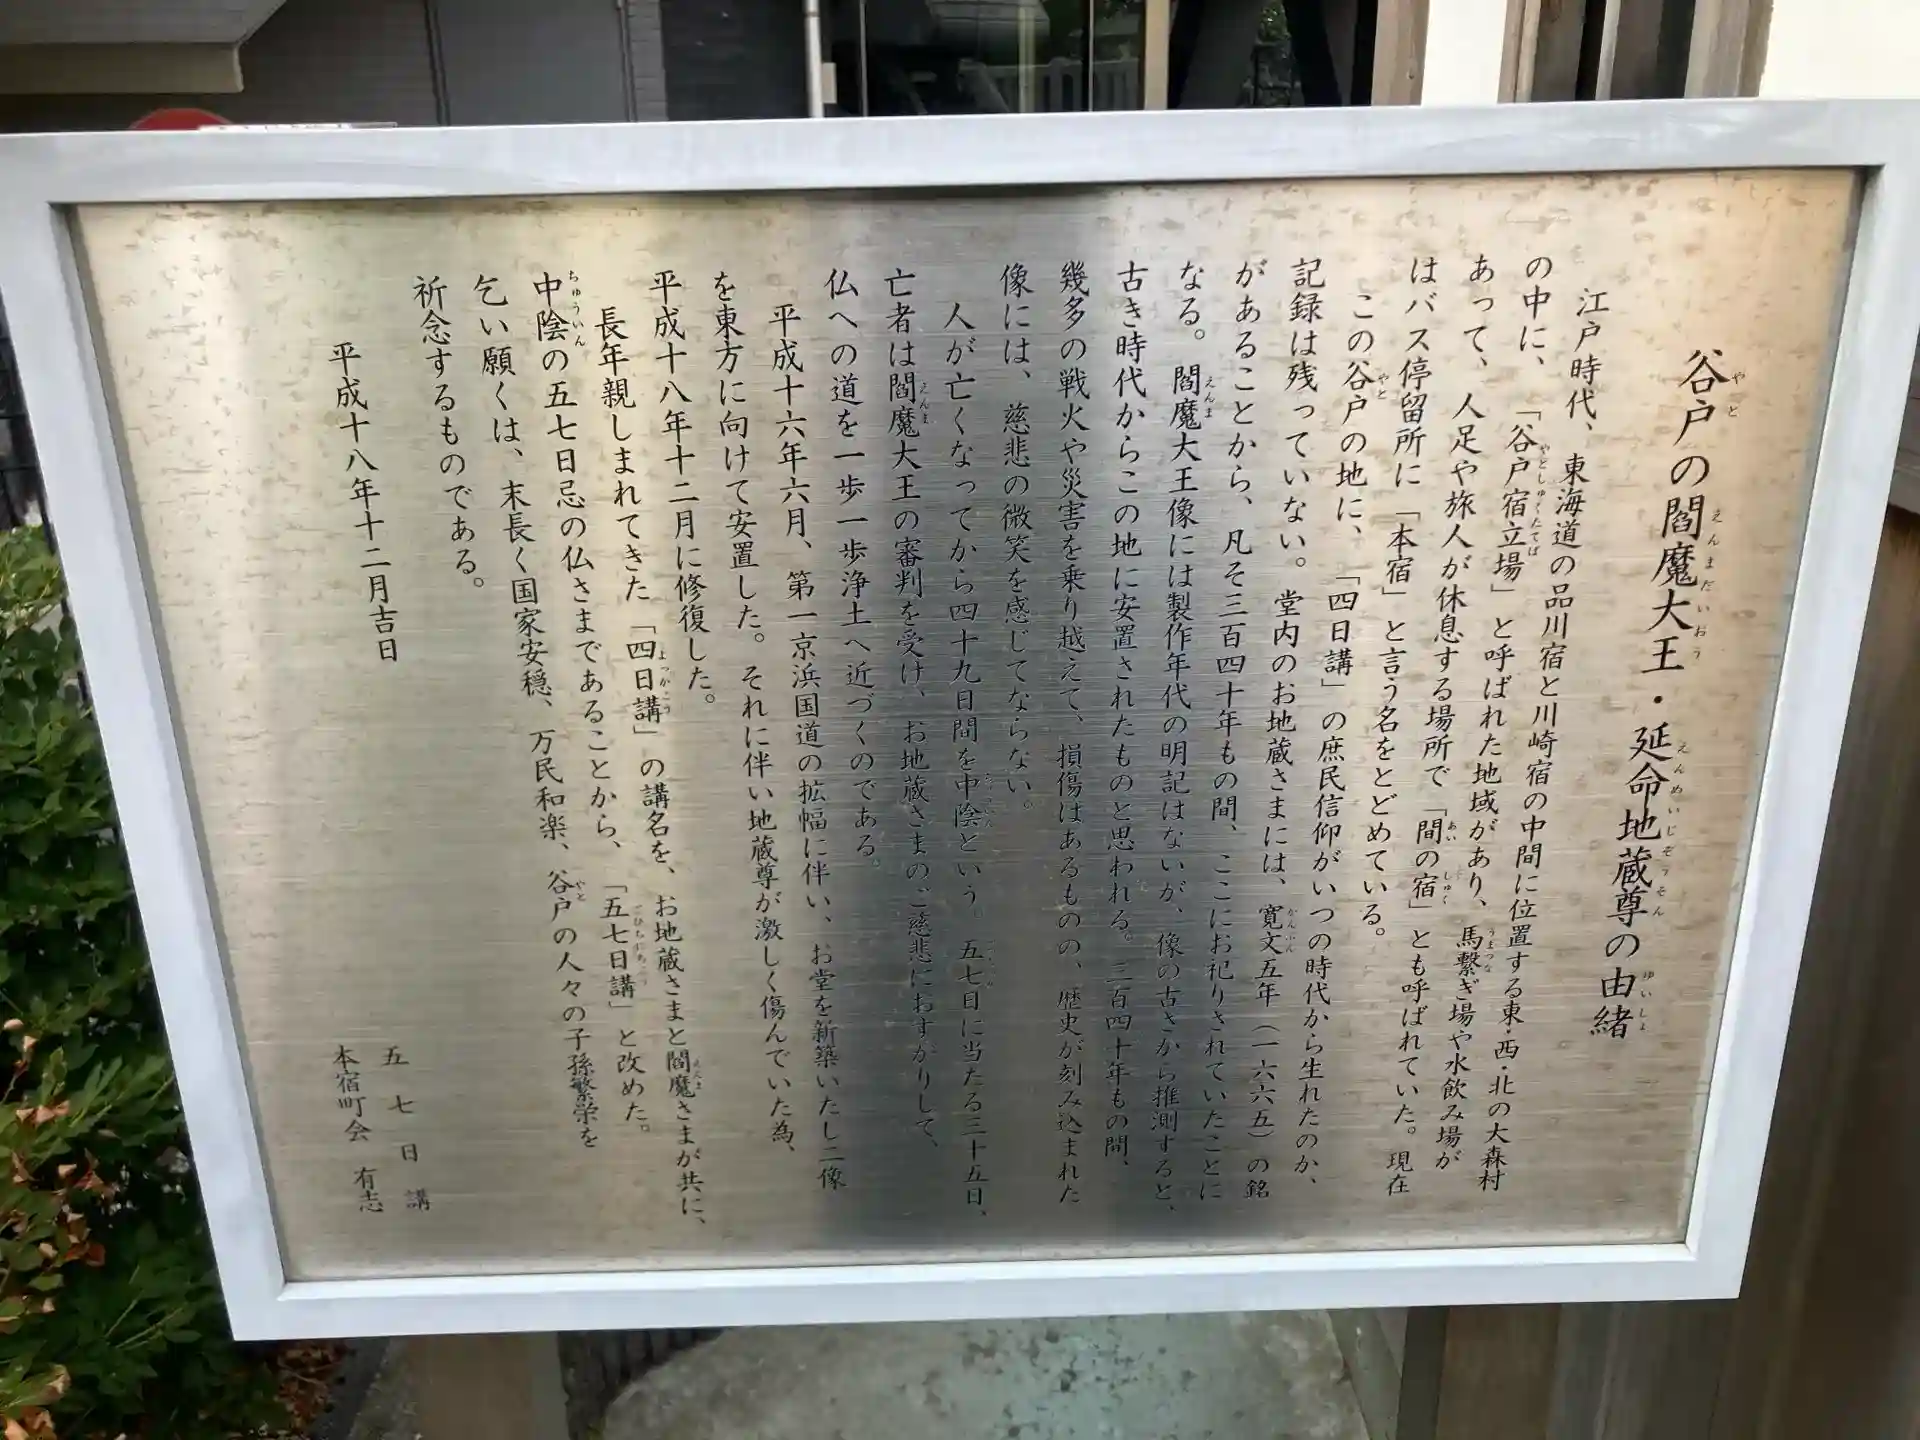 谷戸の閻魔大王・延命地蔵尊の由緒
江戸時代、東海道の品川宿と川崎宿の中間に位置する東・西・北の大森村
の中に、「谷戸宿立場」と呼ばれた地域があり、馬繋ぎ場や水飲み場が
あって、人足や旅人が休息する場所で「間の宿」とも呼ばれていた。現在
はバス停留所に「本宿」と言う名をとどめている。
この谷戸の地に、「四日講」の庶民信仰がいつの時代から生れたのか、
記録は残っていない。堂内のお地蔵さまには、寛文五年(一六六五)の銘
があることから、凡そ三百四十年もの間、ここにお祀りされていたことに
なる。閻魔大王像には製作年代の明記はないが、像の古さから推測すると、
古き時代からこの地に安置されたものと思われる。三百四十年もの間、
幾多の戦火や災害を乗り越えて、損傷はあるものの、歴史が刻み込まれた
像には、慈悲の微笑を感じてならない。
人が亡くなってから四十九日間を中陰という。五七日に当たる三十五日、
亡者は閻魔大王の審判を受け、お地蔵さまのご慈悲におすがりして、
仏への道を一歩一歩浄土へ近づくのである。
平成十六年六月、第一京浜国道の拡幅に伴い、お堂を新築いたし二像
を東方に向けて安置した。それに伴い地蔵尊が激しく傷んでいた為、
平成十八年十二月に修復した。
長年親しまれてきた「四日講」の講名を、お地蔵さまと閻魔さまが共に、
中陰の五七日忌の仏さまであることから、「五七日講」と改めた。
乞い願くは、末長く国家安穏、万民和楽、谷戸の人々の子孫繁栄を
祈念するものである。
平成十八年十二月吉日
五七日講
本宿町会 有志